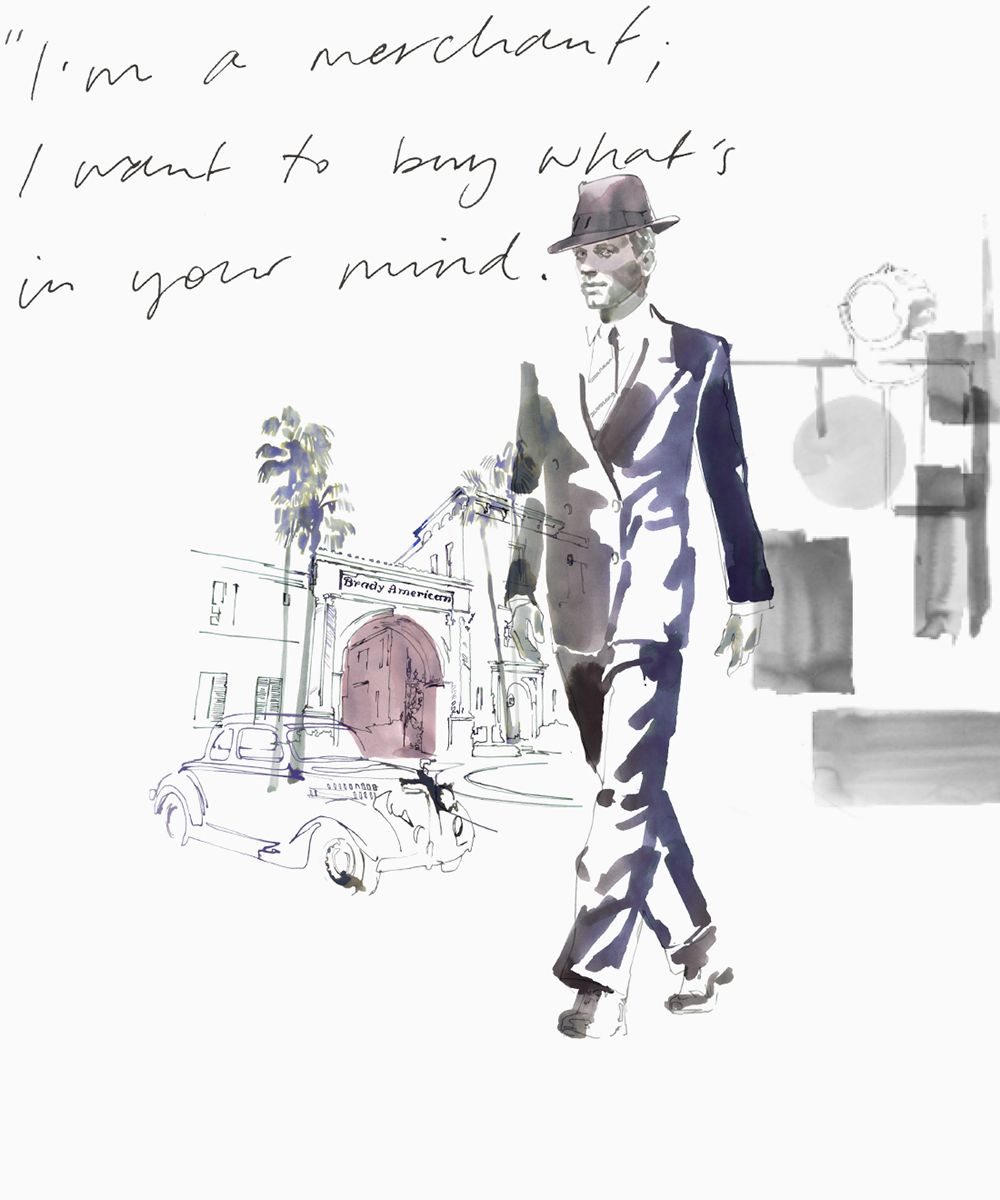 "I'm a merchant;
I want to buy what's
in your mind.
Brady American